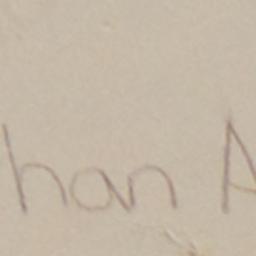 han A